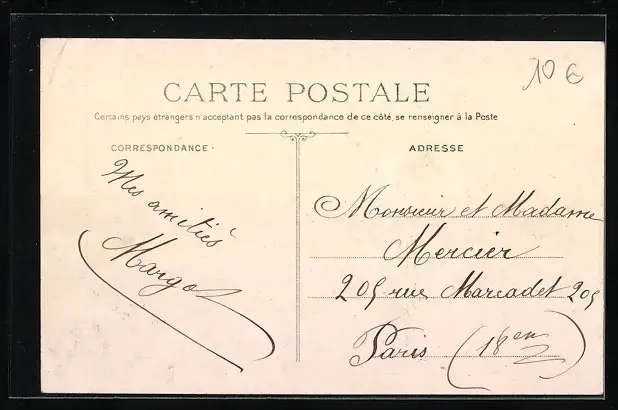 10 €
CARTE POSTALE
Certains pays étrangers n'acceptant pas la correspondance de ce côté, se renseigner à la Poste
CORRESPONDANCE
ADRESSE
Mes amitiés
Margot
Monsieur et Madame
Mercier
205 rue Marcadet 205
Paris (18en)